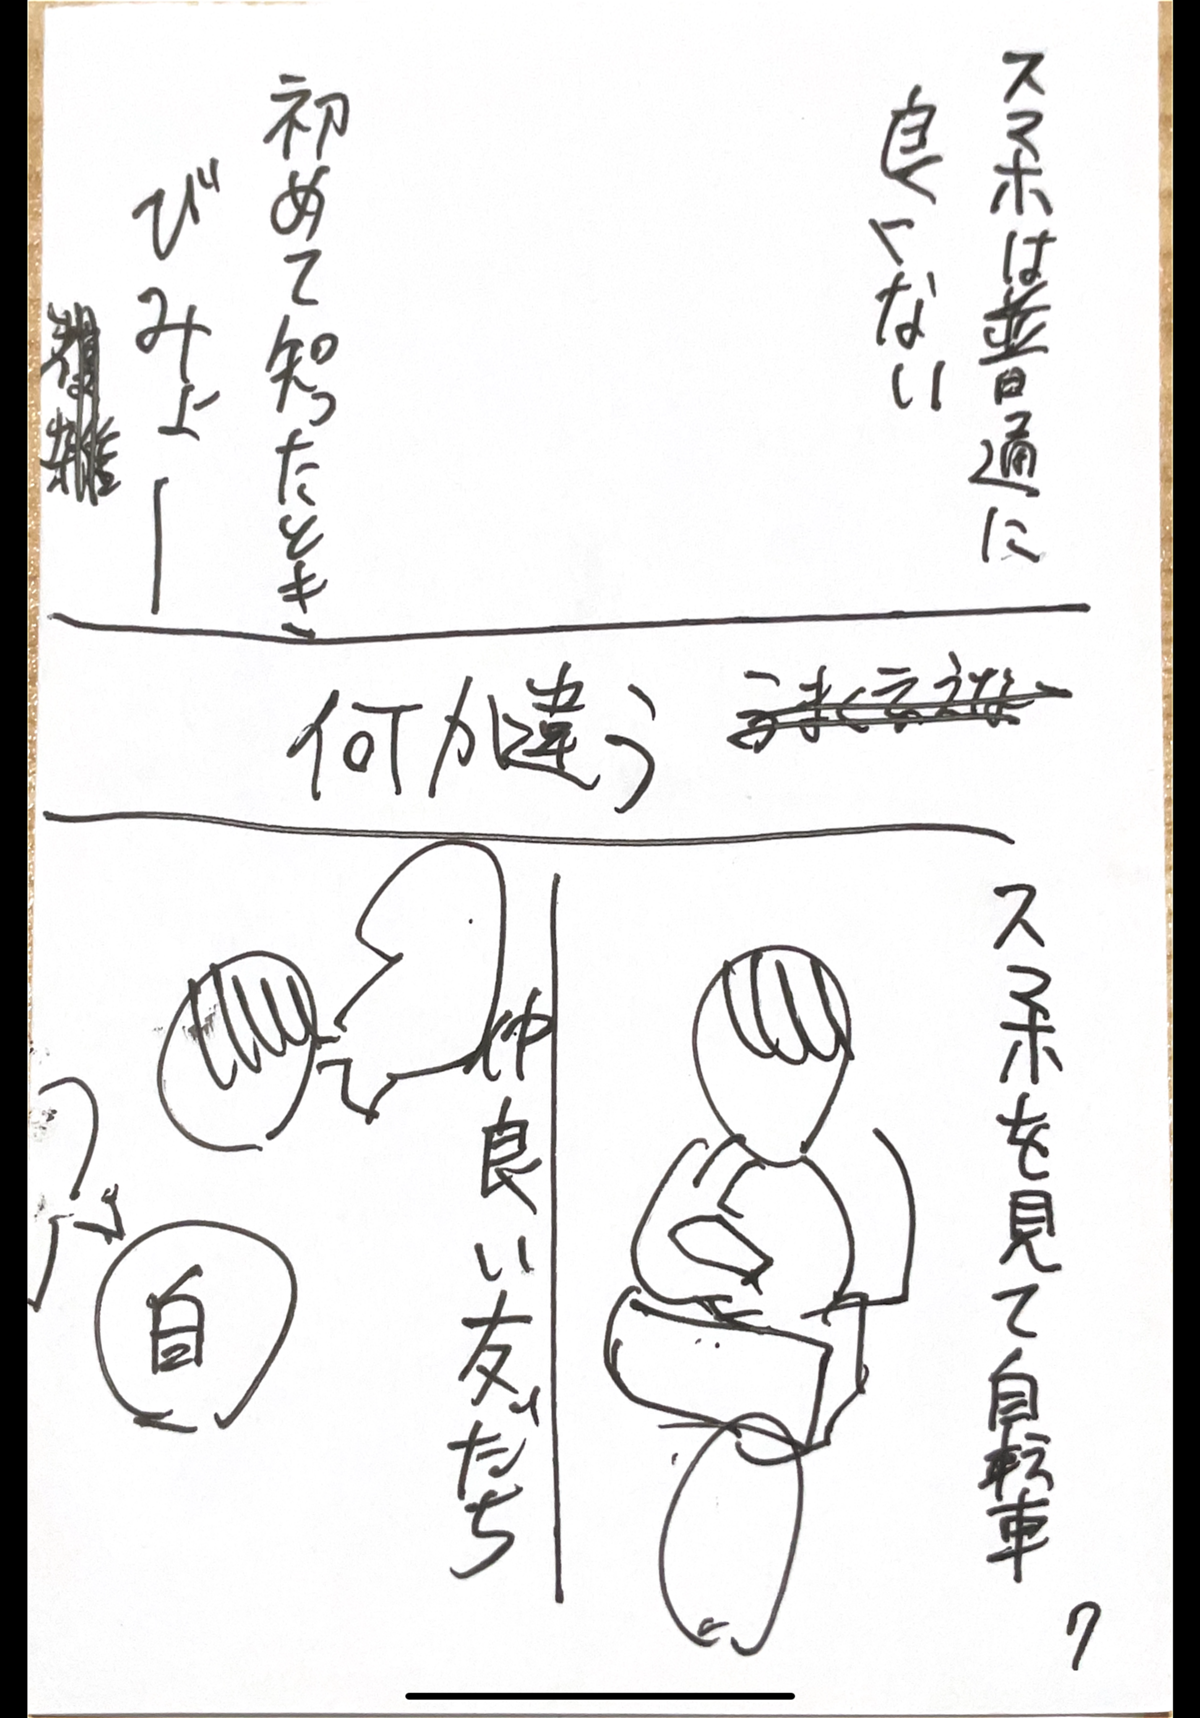 スマホは普通に
良くない
初めて知ったとき
びみょー
複雑
うまく云えない
何か違う
スマホを見て自転車
仲良い友だち
自
7